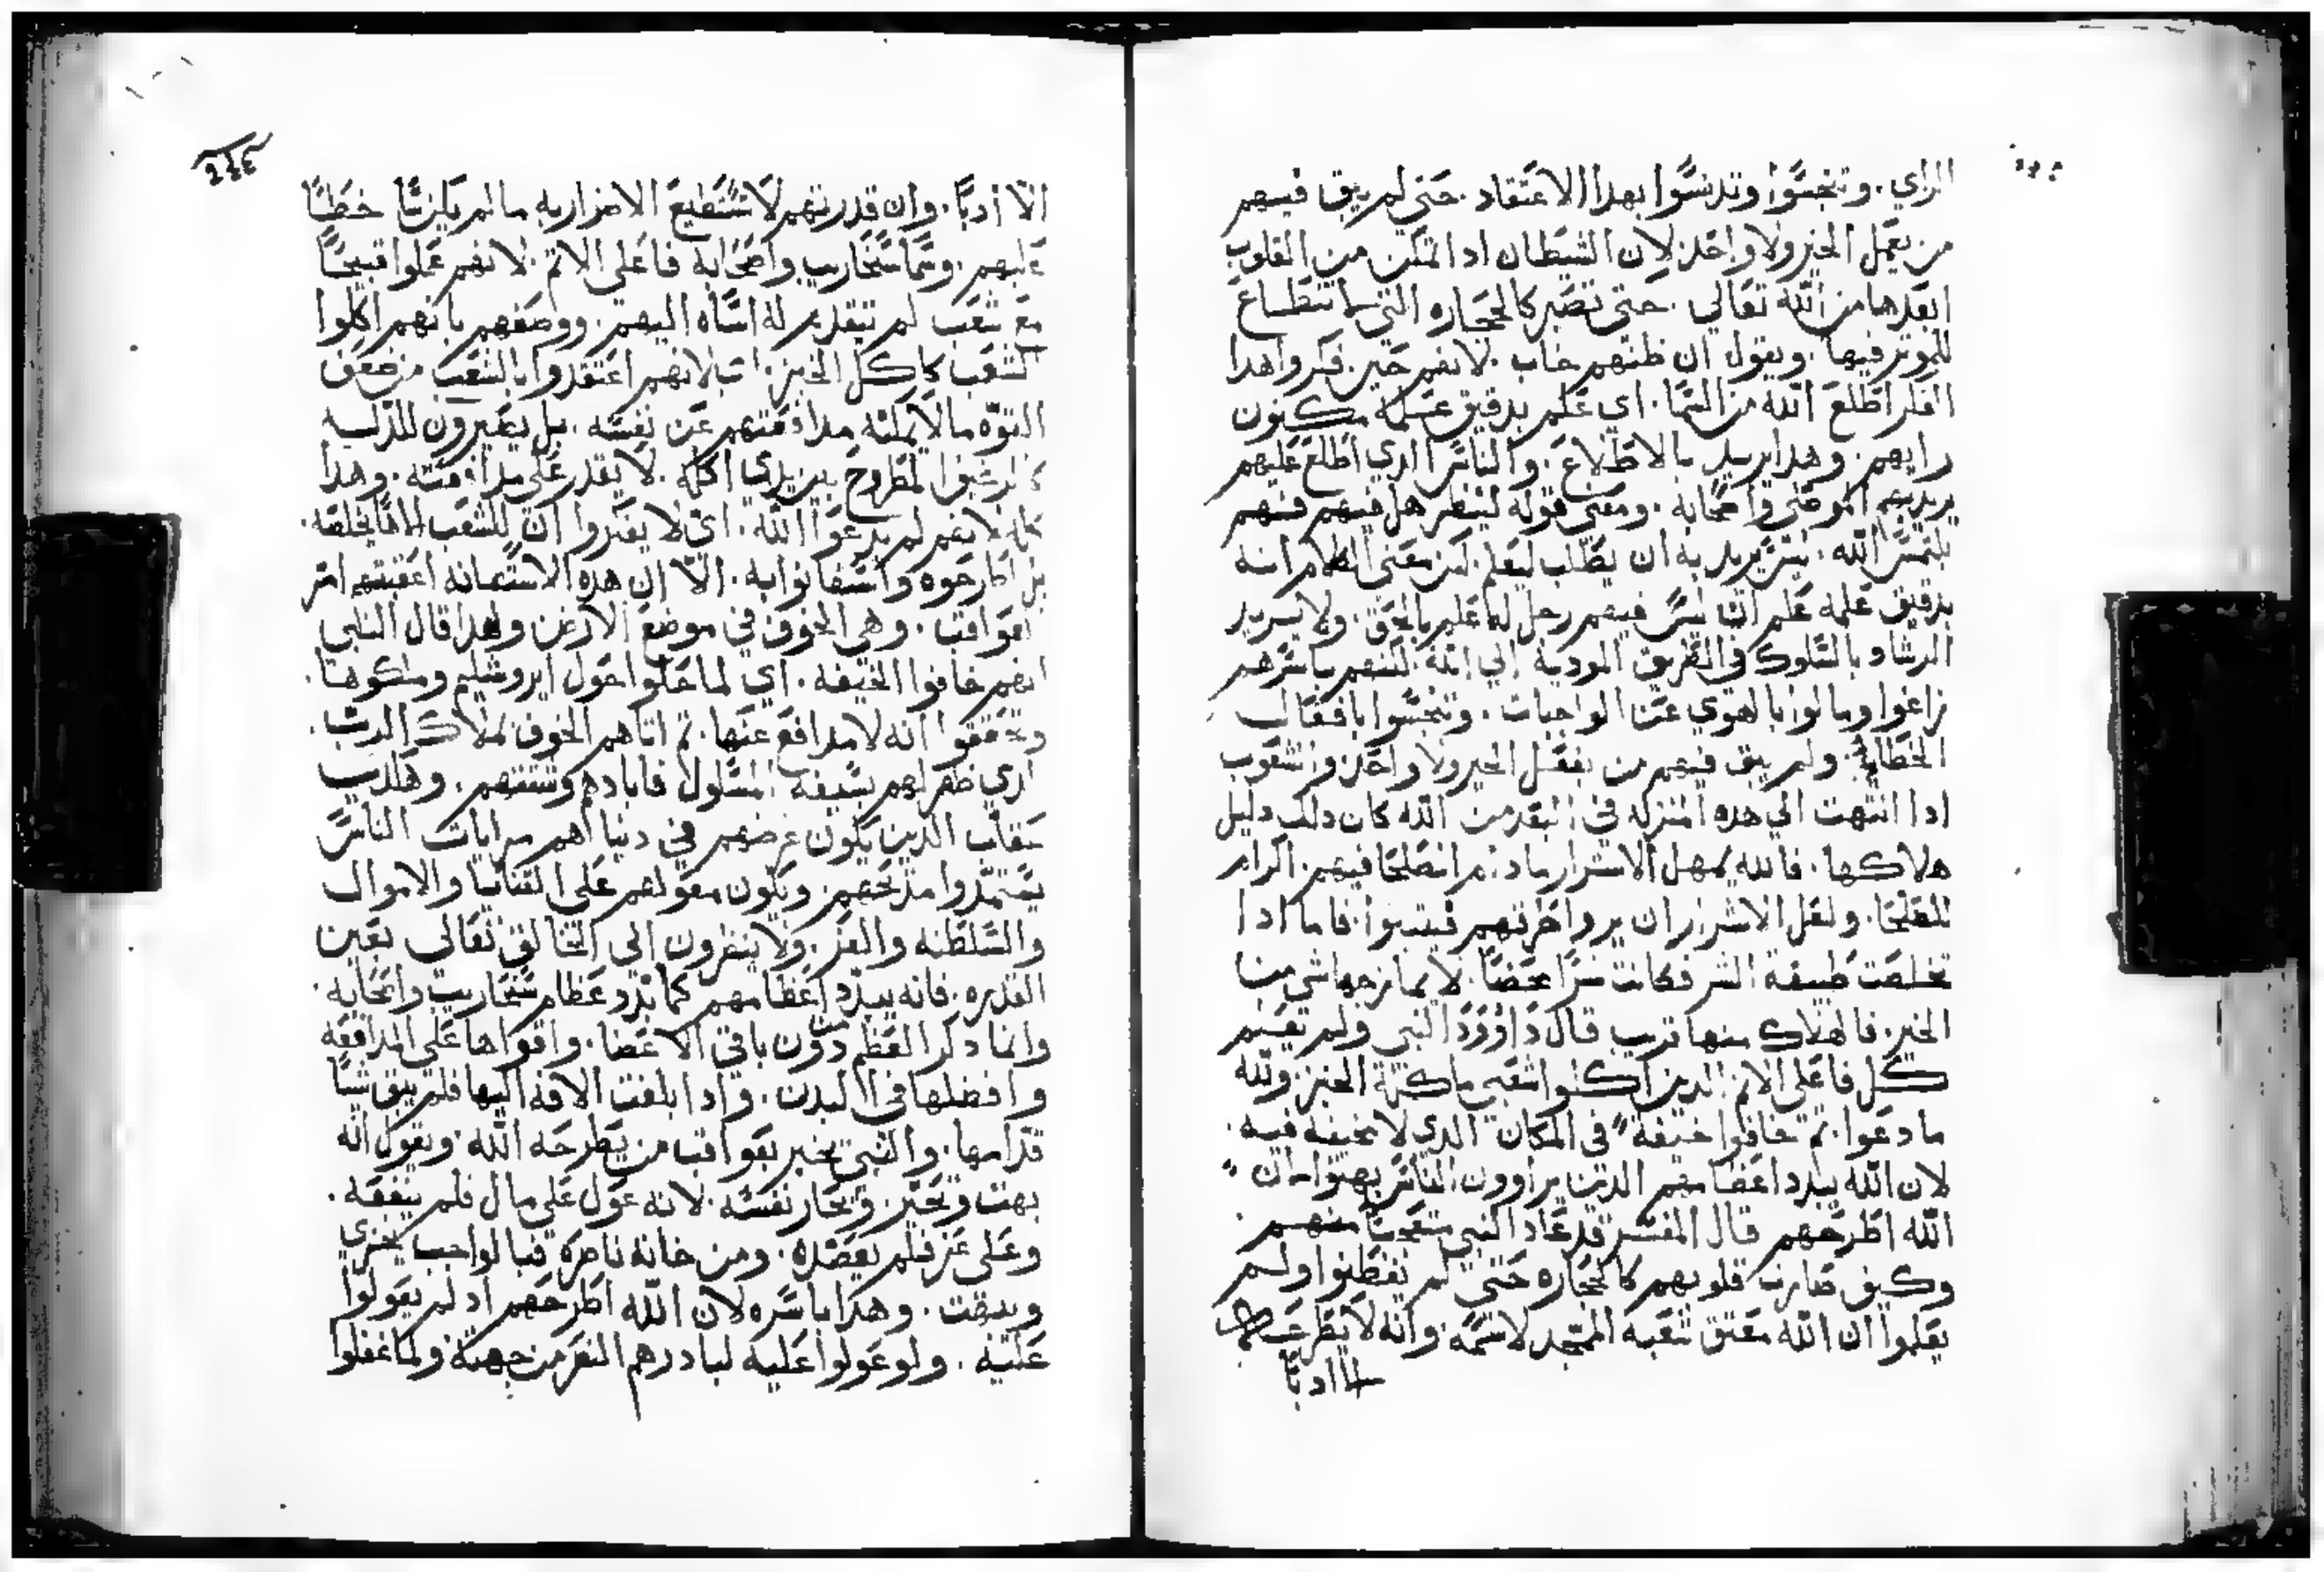 الراي. وتنجسوا وتدنسوا بهدا الاعتقاد. حتي لم يبق فيهم
من يعمل الخير ولا واحد. لان الشيطان ادا تمكن من القلوب
ابعدها من الله تعالي. حتي تصير كالحجاره التي لا تنطاع
للموتر فيها. ويقول ان ظنهم خاب. لانهم حين فكروا هدا
الفكر اطلع الله من السما. اي علم بدقيق علمه مكنون
رايهم. وهدا يريد بالاطلاع. والناس الدي اطلع عليهم
يريد بهم الموصلي واصحابه. ومعني قوله لينظر هل فيهم فهم
يلتمس الله. ليس يريد به ان يطلب ليعلم. لكن معني الكلام انه
بدقيق علمه علم انه ليس فيهم رجل له علم بالحق. ولا يريد
الرشاد بالسلوك في الطريق المودية الي الله. لكنهم باسرهم
زاغوا ومالوا بالهوي عن الواجبات. وتنجسوا بافعال
الخطاية. ولم يبق فيهم من يفعل الخير ولا واحد. والشعوب
ادا انتهت الي هده المنزله في البعد من الله كان دلك دليل
هلاكها. فالله يمهل الاشرار مادام الصلحا فيهم. اكراما
للصلحا. ولعل الاشرار ان يروا طرتهم فيتبوا. فاما ادا
تخلصت طبيعة الشر فكانت شرا محضا. لا يمازجها شي من
الخير. فالهلاك منها قريب قال داوود النبي ولم تفهم
كل فاعلي الاتم الدين اكلوا شعبي ماكلة الخبز. ولله
ما دعوا. تم خافوا خيفة في المكان الدي لا خيفه فيه.
لان الله يبدد اعظامهم الدين يراوون الناس بهتوا لان
الله اطرحهم قال المفسر قد عاد النبي متعجبا منهم
وكيف صارت قلوبهم كالحجاره حتي لم يفطنوا ولم
يعلموا ان الله معتق شعبه الممجد لاسمه. وانه لا يطرعهم
الا ادبا
الا ادبا. وان قدرتهم لا تستطيع الاضرار به ما لم يكن شا خطا
عليهم. وسما سنحاريب واصحابه فاعلي الاتم. لانهم عملوا قبيحا
مع شعب لم تتقدم له اساه اليهم. ووصفهم بانهم اكلوا
الشعب كاكل الخبز. اي لانهم اعتقدوا بالشعب من ضعف
القوه ما لا يمكنه مدافعتهم عن نفسه. بل يصيرون للدله
كالرغيف المطروح بين يدي اكله. لا يقدر علي مدافعته. وهدا
كله لانهم لم يدعوا الله. اي لا يقدروا ان للشعب الاها يخلصه.
بل اطرحوه واستهانوا به. الا ان هده الاستهانه اعقبتهم امر
العواقب. وهي الخوف في موضع الارض ولهدا قال النبي
انهم خافوا الخيفه. اي لما حلوا حول ايروشليم وملكوها.
وتحققوا انه لا مدافع عنها. تم اتاهم الخوف بملاك الرب.
الدي ظهر لهم بسيفه المسلول فابادهم وشتتهم. وهكدي
عقاب الدين يكون غرضهم في دنياهم مرايات الناس
يستمدوا مدحهم. ويكون معولهم علي القنايا والاموال
والسلطنه والعز. ولا ينظرون الي الخالق تعالي بعين
القدره. فانه يبدد اعظامهم كما بدد عظام سنحاريب واصحابه.
وانما دكر العظم دون باقي الاعضا. واقواها علي المدافعه
وافضلها في البدن. وادا بلغت الافه اليها فلم يبق شيا
قدامها. والنبي يخبر بعواقب من يطرحه الله. ويقول انه
بهت وتحير. وتحار نفسه. لانه عول علي مال فلم ينفعه.
وعلي عز فلم يعضده. ومن خانه ناصره فبالواجب يخزي
ويبهت. وهدا باسره لان الله اطرحهم اد لم يعولوا
عليه. ولو عولوا عليه لبادرهم النصر من جهته ولما غفلوا